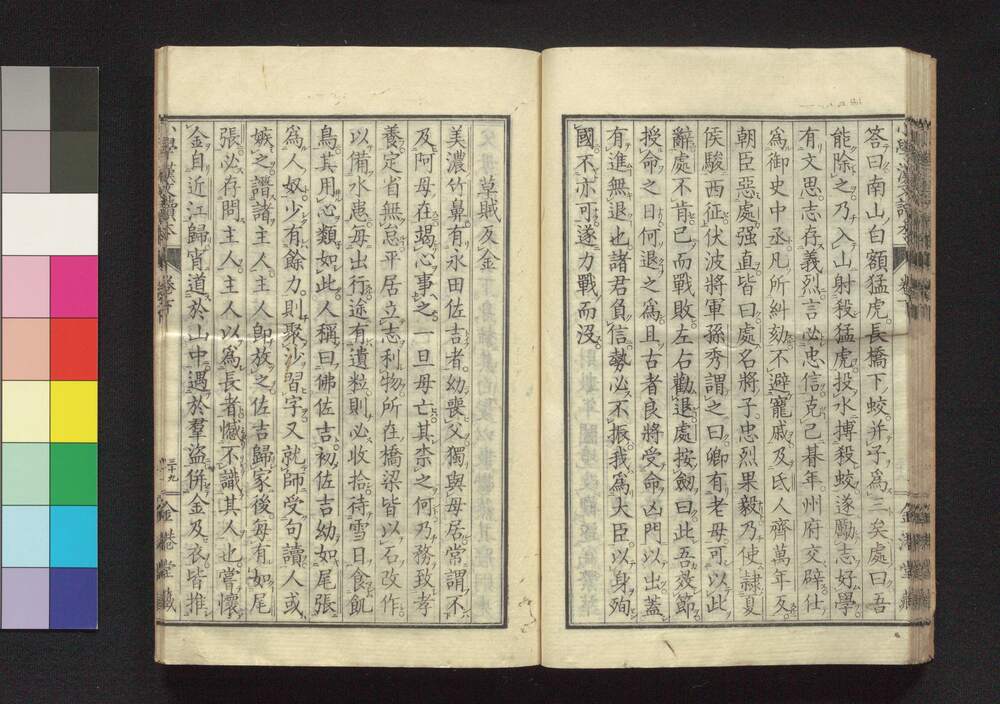 答曰南山白額猛虎長橋下蛟并子爲三矣處曰吾
能除之乃入山射殺猛虎投水搏殺蛟遂勵志好學
有文思志存義烈言必忠信克己朞年州府交辟仕
爲御史中丞凡所糾劾不避寵戚及氐人齊萬年反
朝臣惡處强直皆曰處名將子忠烈果毅乃使隷夏
侯駿西征伏波將軍孫秀謂之曰卿有老母可以此
辭處不肯已而戰敗左右勸退處按劒曰此吾效節
授命之日何退之爲且古者良將受命凶門以出蓋
有進無退也諸君負信勢必不振我爲大臣以身殉
國不亦可遂力戰而沒
草賊反金
美濃竹鼻有永田佐吉者幼喪父獨與母居常謂不
及阿母在竭心事之一旦母亡其柰之何乃務致孝
養定省無怠平居立志利物所在橋梁皆以石改作
以備水患毎出行途有遺粒則必收拾待雪日食飢
鳥其用心類如此人稱曰佛佐吉初佐吉幼如尾張
爲人奴少有餘力則聚沙習字又就師受句讀人或
嫉之譖諸主人主人卽放之佐吉歸家後毎有如尾
張必存問主人主人以爲長者憾不識其人也嘗懷
金自近江歸宵道於山中遇於羣盗倂金及衣皆推
小學漢文讀本
卷下
二十九
金港堂藏